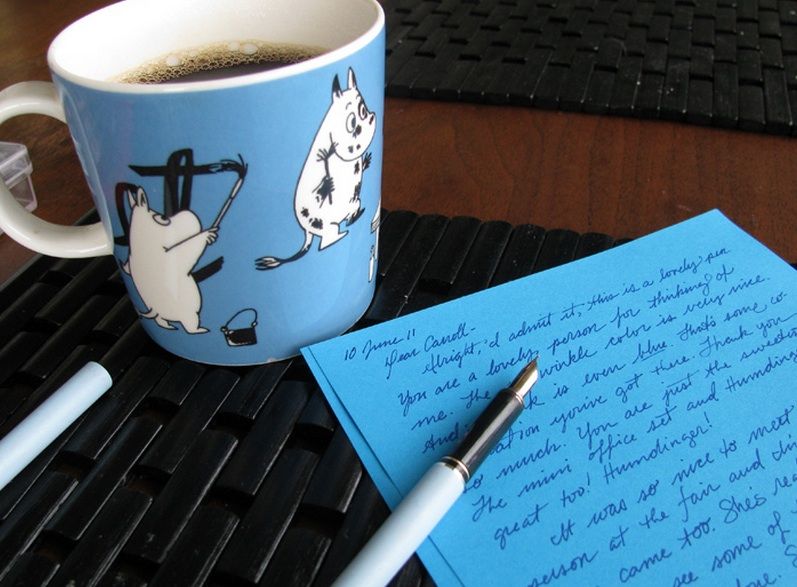 10 June 11
Dear Carroll-
Alright, I admit it, this is a lovely pen
You are a lovely person for thinking of
me. The winkle color is very nice.
And is even blue. That's some co
ation you've got there. Thank you
so much. You are just the sweetes
The mini office set and Humding
great too! Humdinger!
It was so nice to meet
person at the fair and
came too. She's rea
see some of